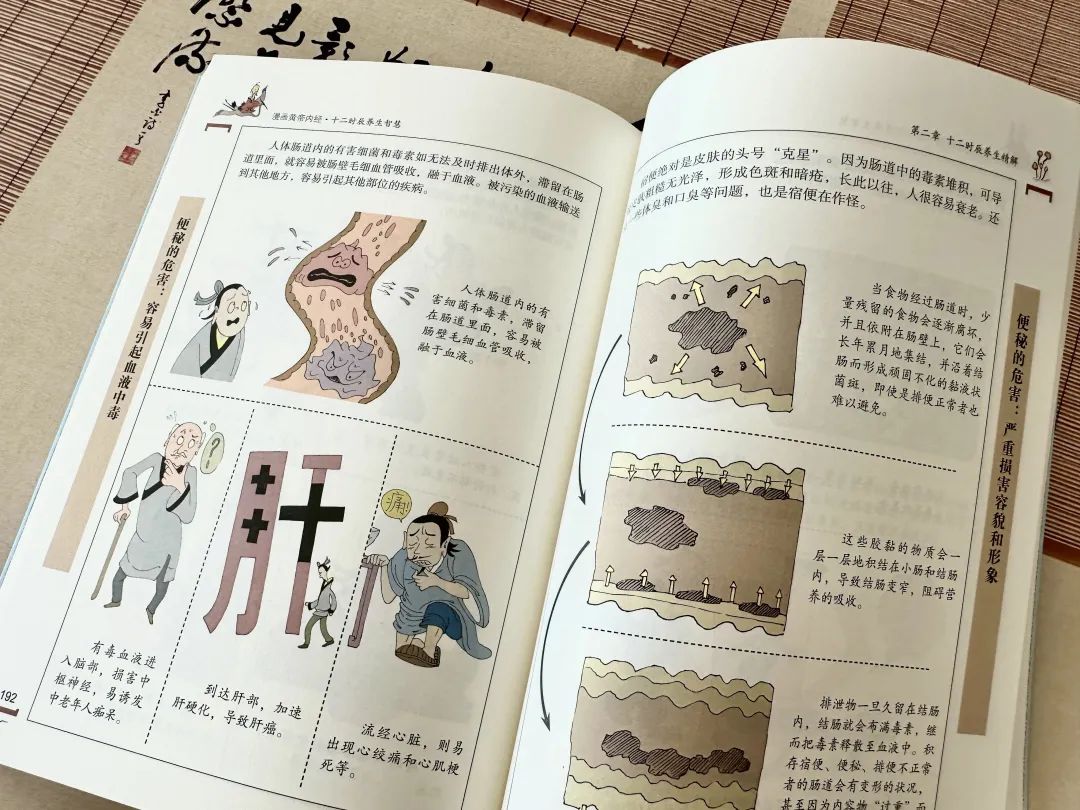 漫画黄帝内经·十二时辰养生智慧
人体肠道内的有害细菌和毒素如无法及时排出体外，滞留在肠
道里面，就容易被肠壁毛细血管吸收，融于血液。被污染的血液输送
到其他地方，容易引起其他部位的疾病。
便秘的危害：容易引起血液中毒
人体肠道内的有
害细菌和毒素，滞留
在肠道里面，容易被
肠壁毛细血管吸收，
融于血液。
?
有毒血液进
入脑部，损害中
枢神经，易诱发
中老年人痴呆。
肝
到达肝部，加速
肝硬化，导致肝癌。
痛!
流经心脏，则易
出现心绞痛和心肌梗
死等。
192
第二章 十二时辰养生精解
宿便绝对是皮肤的头号“克星”。因为肠道中的毒素堆积，可导
肤粗糙无光泽，形成色斑和暗疮，长此以往，人很容易衰老。还
些体臭和口臭等问题，也是宿便在作怪。
便秘的危害：严重损害容貌和形象
当食物经过肠道时，少
量残留的食物会逐渐腐坏，
并且依附在肠壁上，它们会
长年累月地集结，并沿着结
肠而形成顽固不化的黏液状
菌斑，即使是排便正常者也
难以避免。
这些胶黏的物质会一
层一层地积结在小肠和结肠
内，导致结肠变窄，阻碍营
养的吸收。
排泄物一旦久留在结肠
内，结肠就会布满毒素，继
而把毒素释散至血液中。积
存宿便、便秘、排便不正常
者的肠道会有变形的状况，
甚至因为内容物“过重”而